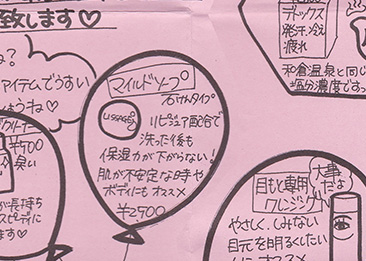 致します♡
ね?
アイテムでうすい
しょうね♡
クリーナー
¥500
臭い
が長持ち
スピーディに
ます♡
マイルドソープ
石けんタイプ
LISSAGE
リピジュア配合で
洗った後も
保湿力が下がらない!
肌が不安定な時や
ボディにもオススメ
¥2700
デトックス
発汗、冷え
疲れ
和倉温泉と同じ
塩分濃度です
目もと専用
クレンジング
大事だよ
やさしく、しみない
目元を明るくしたい
オススメ